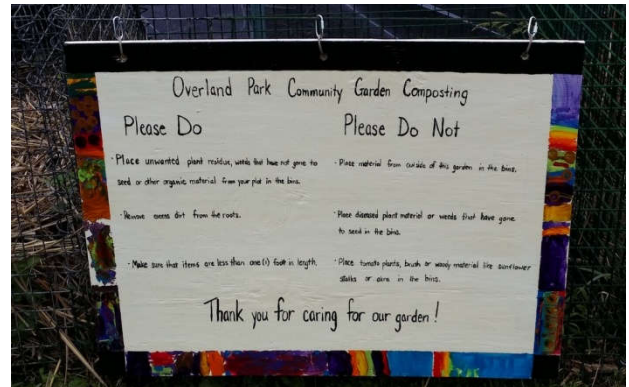 Overland Park Community Garden Composting
Please Do
· Place unwanted plant residue, weeds that have not gone to
seed or other organic material from your plot in the bins.
· Remove excess dirt from the roots.
· Make sure that items are less than one (1) foot in length.
Please Do Not
· Place material from outside of this garden in the bins.
· Place diseased plant material or weeds that have gone
to seed in the bins.
· Place tomato plants, brush or woody material like sunflower
stalks or in the bins.
Thank you for caring for our garden!